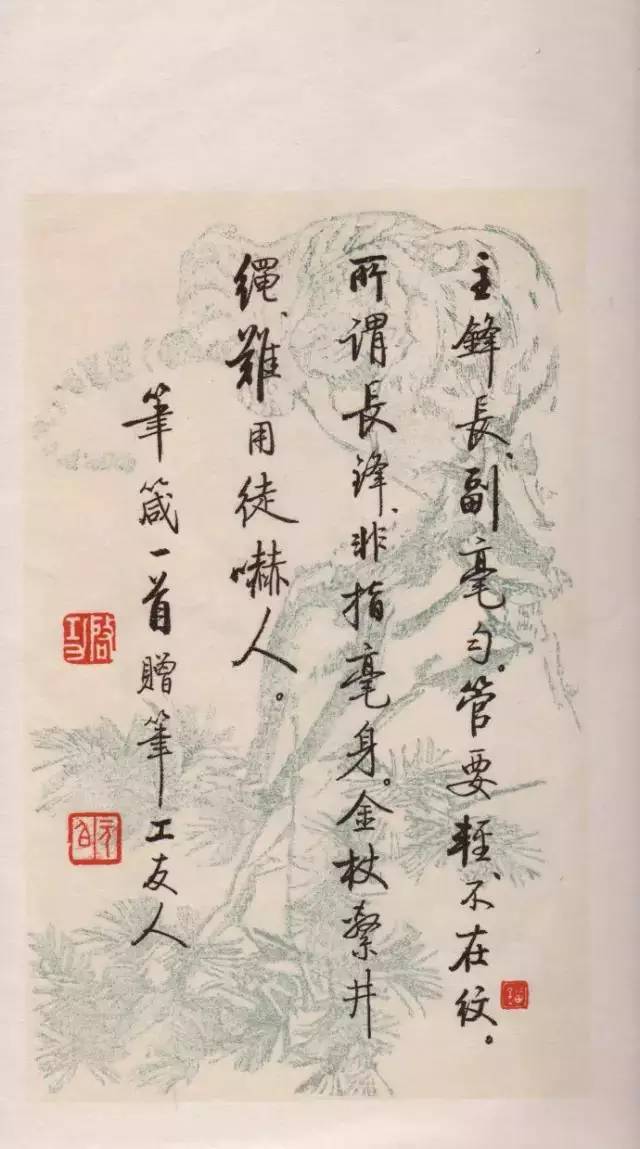 主鋒長、副毫勻。管要輕、不在紋。
所谓長鋒、非指毫身。金杖繫井
繩、難用徒嚇人。
筆箴一首贈筆工友人
啓功
元白